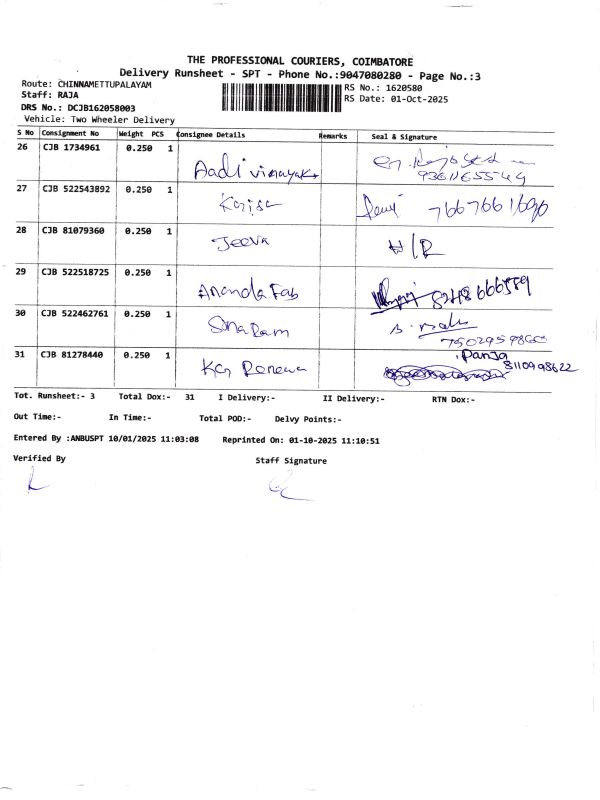 THE PROFESSIONAL COURIERS, COIMBATORE
Delivery Runsheet - SPT - Phone No.:9047080280 - Page No.:3
Route: CHINNAMETTUPALAYAM
RS No.: 1620580
Staff: RAJA
RS Date: 01-Oct-2025
DRS No.: DCJB162058003
Vehicle: Two Wheeler Delivery
S No Consignment No Weight PCS Consignee Details Remarks Seal & Signature
26 CJB 1734961 0.250 1 Aadi vinayaka
27 CJB 522543892 0.250 1
28 CJB 81079360 0.250 1 Jeeva H/R
29 CJB 522518725 0.250 1 Ananda Fab
30 CJB 522462761 0.250 1
31 CJB 81278440 0.250 1 8110998622
Tot. Runsheet:- 3 Total Dox:- 31 I Delivery:- II Delivery:- RTN Dox:-
Out Time:- In Time:- Total POD:- Delvy Points:-
Entered By :ANBUSPT 10/01/2025 11:03:08 Reprinted On: 01-10-2025 11:10:51
Verified By Staff Signature